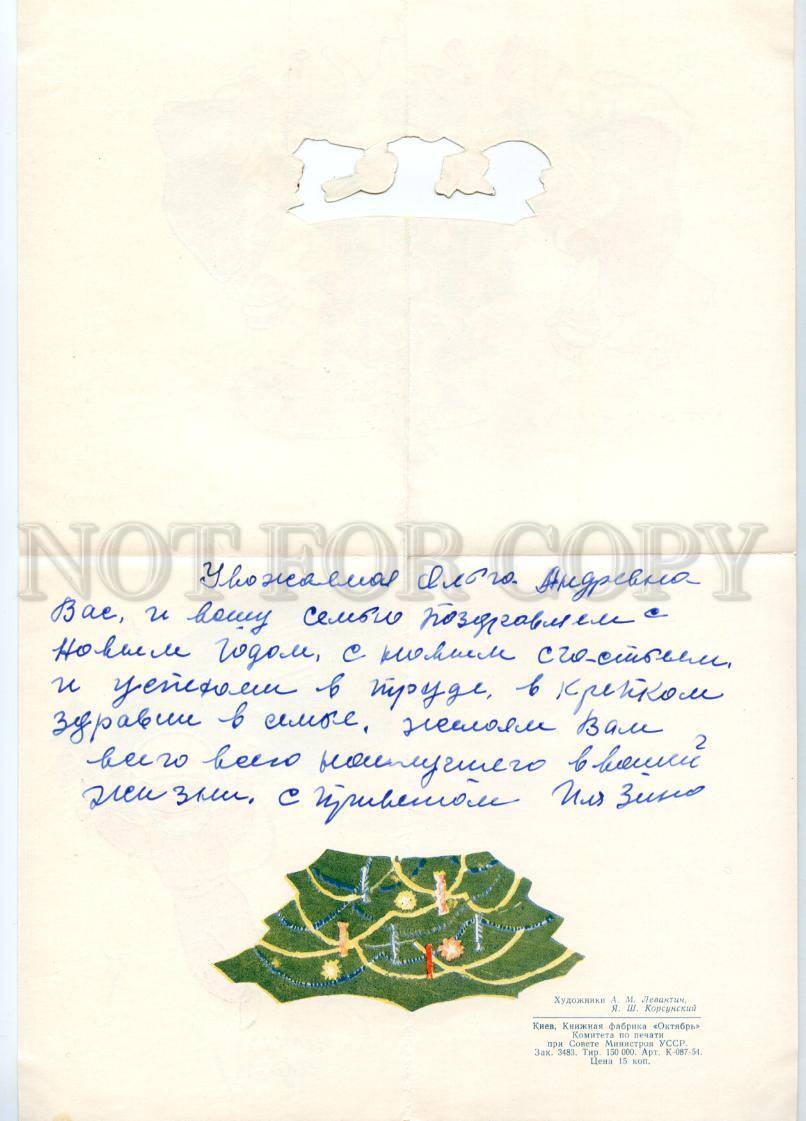 NOT FOR COPY
Уважаемая Ольга Андревна
Вас, и вашу семью поздравляем с
Новым Годом, с новым счастьем,
и успехами в труде, в крепком
здравии в семье, желаем Вам
всего всего наилучшего в вашей
жизни. С приветом Зина
Художники А. М. Левантин,
Я. Ш. Корсунский
Киев, Книжная фабрика «Октябрь»
Комитета по печати
при Совете Министров УССР.
Зак. 3483. Тир. 150 000. Арт. К-087-54.
Цена 15 коп.